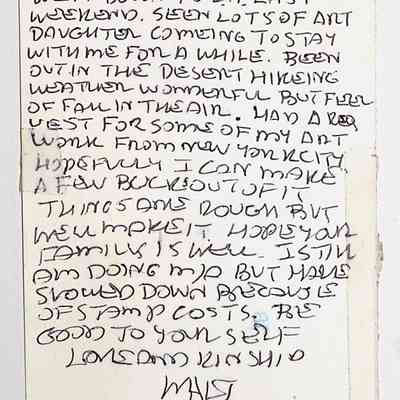 WENT DOWN TO L.A. LAST
WEEKEND. SEEN LOTS OF ART
DAUGHTER COMEING TO STAY
WITH ME FOR A WHILE. BEEN
OUT IN THE DESERT HIKEING
WEATHER WONDERFUL BUT FEEL
OF FALL IN THE AIR. HAD A REQ
UEST FOR SOME OF MY ART
WORK FROM NEW YORK CITY.
HOPEFULLY I CAN MAKE
A FEW BUCKS OUT OF IT
THINGS ARE ROUGH BUT
WELL MAKE IT. HOPE YOUR
FAMILY IS WELL. I STILL
AM DOING M/A BUT HAVE
SLOWED DOWN BECAUSE
OF STAMP COSTS. BE
GOOD TO YOUR SELF
LOVE AND KINSHIP